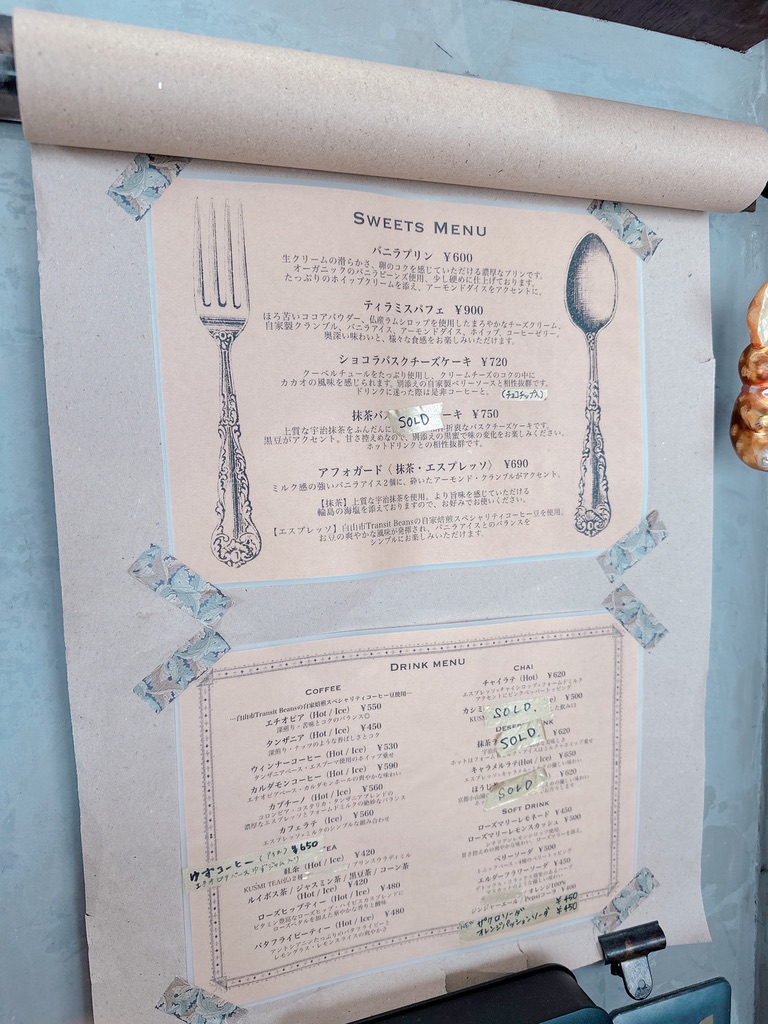 SWEETS MENU
バニラプリン ¥600
生クリームの滑らかさ、卵のコクを感じていただける濃厚なプリンです。
オーガニックのバニラビーンズ使用。少し硬めに仕上げております。
たっぷりのホイップクリームを添え、アーモンドダイスをアクセントに。
ティラミスパフェ ¥900
ほろ苦いココアパウダー、仏産ラムシロップを使用したまろやかなチーズクリーム。
自家製クランブル、バニラアイス、アーモンドダイス、ホイップ、コーヒーゼリー。
奥深い味わいと、様々な食感をお楽しみいただけます。
ショコラバスクチーズケーキ ¥720
クーベルチュールをたっぷり使用し、クリームチーズのコクの中に
カカオの風味を感じられます。別添えの自家製ベリーソースと相性抜群です。
ドリンクに迷った際は是非コーヒーと。 (チョコチップ入)
抹茶バス SOLD ーキ ¥750
上質な宇治抹茶をふんだんに 折衷なバスクチーズケーキです。
黒豆がアクセント。甘さ控えめなので、別添えの黒蜜で味の変化をお楽しみください。
ホットドリンクとの相性抜群です。
アフォガード〈 抹茶・エスプレッソ 〉 ¥690
ミルク感の強いバニラアイス2個に、砕いたアーモンド・クランブルがアクセント。
【抹茶】上質な宇治抹茶を使用。より旨味を感じていただける
輪島の海塩を添えておりますので、お好みでお使いください。
【エスプレッソ】白山市Transit Beansの自家焙煎スペシャリティコーヒー豆を使用。
お豆の爽やかな風味が発揮され、バニラアイスとのバランスを
シンプルにお楽しみいただけます。
DRINK MENU
COFFEE
―白山市Transit Beansの自家焙煎スペシャリティコーヒー豆使用―
エチオピア (Hot / Ice) ¥550
深煎り・苦味とコクのバランス◎
タンザニア (Hot / Ice) ¥450
深煎り・ナッツのような香ばしさとコク
ウィンナーコーヒー (Hot / Ice) ¥530
タンザニアベース・エスプーマ使用のホイップ乗せ
カルダモンコーヒー (Hot / Ice) ¥590
エチオピアベース・カルダモンホールの爽やかな味わい
カプチーノ (Hot / Ice) ¥560
コロンビア・コスタリカ・タンザニアブレンドの
濃厚なエスプレッソとフォームドミルクの絶妙なバランス
カフェラテ (Ice) ¥560
エスプレッソ・ミルクのシンプルな組み合わせ
ゆずコーヒー (アイス) ¥650
エチオピアベース ゆずジャム入り
TEA
紅茶 (Hot / Ice) ¥420
KUSMI TEA(仏)2種
ルイボス茶 / ジャスミン茶 / 黒豆茶 / コーン茶
(Hot / Ice) ¥420
ローズヒップティー (Hot / Ice) ¥480
ビタミン豊富なローズヒップ・ハイビスカスブレンドに
ローズペタルを加えた華やかな香りと酸味
バタフライピーティー (Hot / Ice) ¥480
アントシアニンたっぷりのバタフライピーと
レモングラス・レモンスライスの爽やかさ
CHAI
チャイラテ (Hot) ¥620
エスプレッソ・チャイシロップ・フォームドミルク
アクセントにピンクペッパートッピング
カシミ SOLD.
KUSMI
DESSERT DRINK
抹茶ラ SOLD. ¥620
キャラメルラテ (Hot / Ice) ¥650
ほうじ SOLD ¥620
SOFT DRINK
ローズマリーレモネード ¥450
ローズマリーレモンスカッシュ ¥500
ベリーソーダ ¥500
エルダーフラワーソーダ ¥450
オレンジ100%
ジンジャーエール / Pepsiコーラ ¥400
ザクロソーダ ¥450
オレンジパッションソーダ ¥450